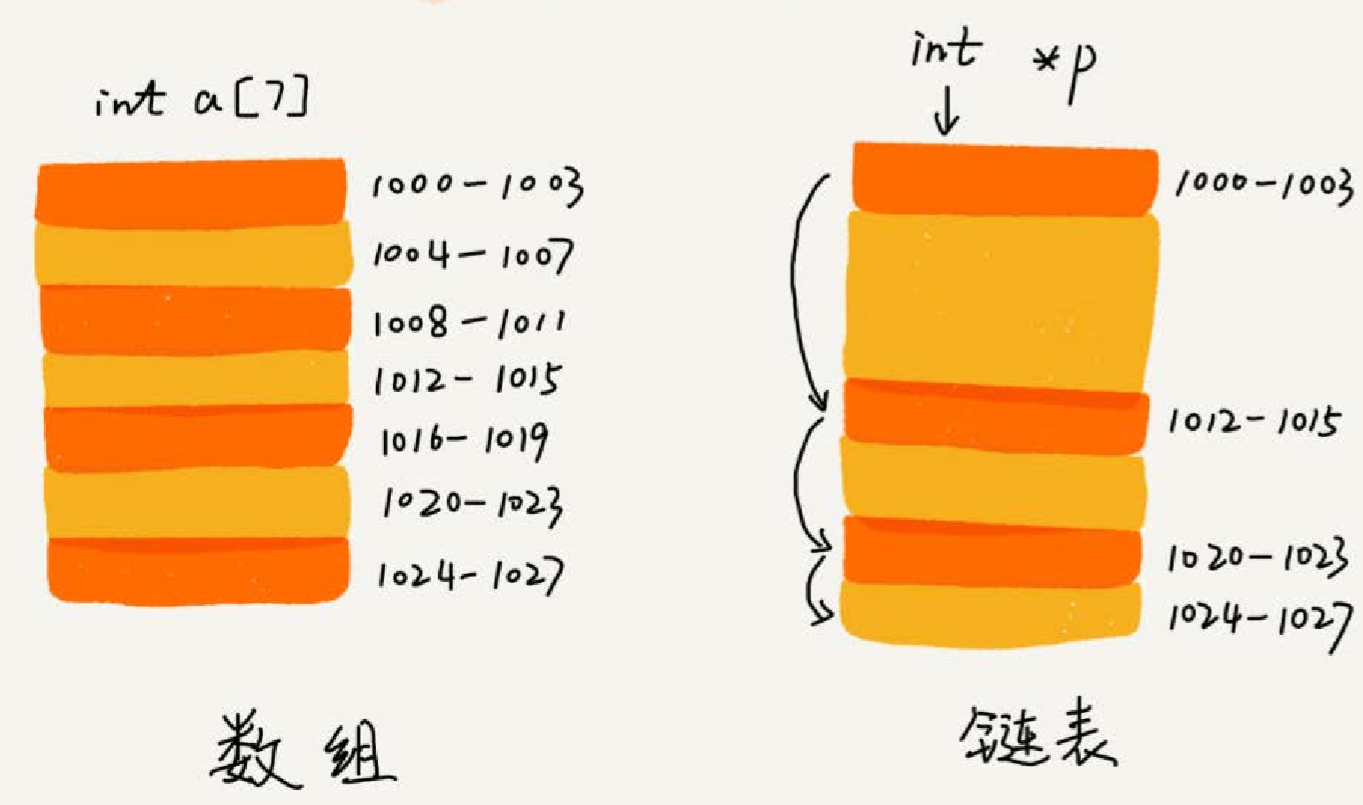 int a[7]
1000-1003
1004-1007
1008-1011
1012-1015
1016-1019
1020-1023
1024-1027
数组
int *p
1000-1003
1012-1015
1020-1023
1024-1027
链表